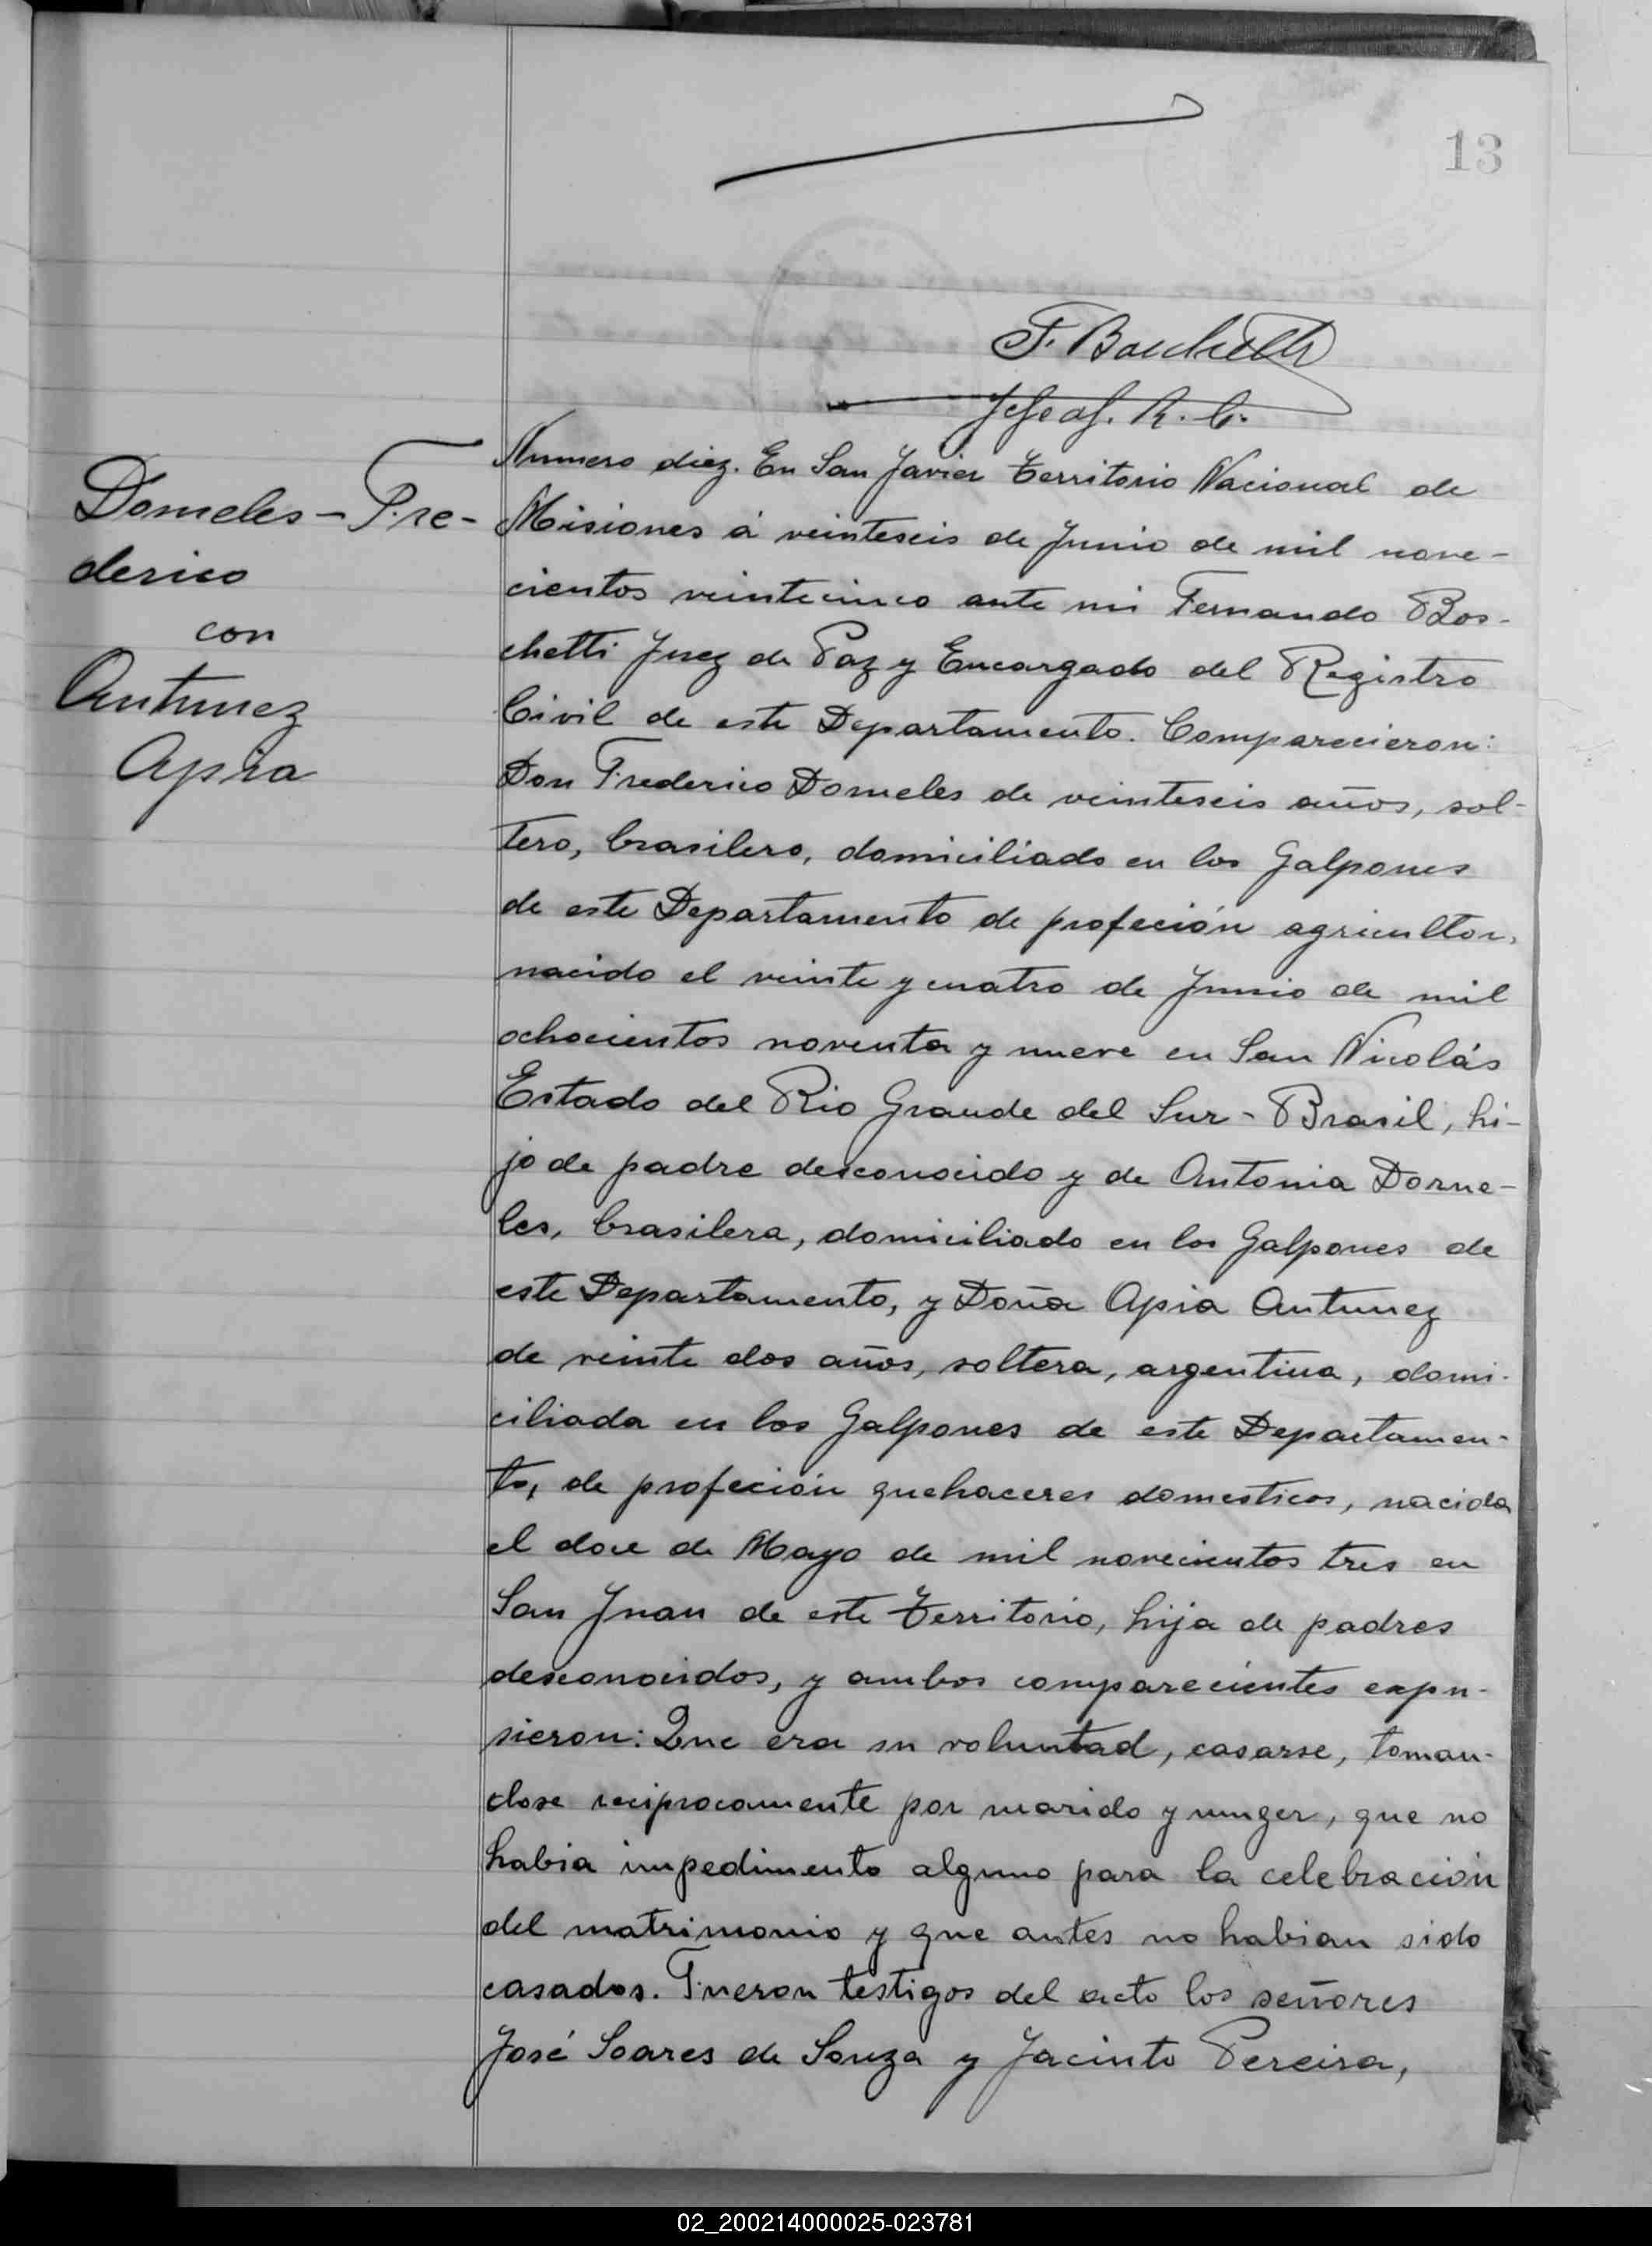 13
F. Boschetti
Jefe af. R. C.
Dorneles - Fre-
derico
con
Antunez
Apia
Numero diez. En San Javier Territorio Nacional de
Misiones á veinteseis de Junio de mil nove-
cientos veintecinco ante mi Fernando Bos-
chetti Juez de Paz y Encargado del Registro
Civil de este Departamento. Comparecieron:
Don Frederico Dorneles de veinteseis años, sol-
tero, brasilero, domiciliado en los Galpones
de este Departamento de profeción agricultor,
nacido el veinte y cuatro de Junio de mil
ochocientos noventa y nueve en San Nicolás
Estado del Rio Grande del Sur - Brasil, hi-
jo de padre desconocido y de Antonia Dorne-
les, brasilera, domiciliado en los Galpones de
este Departamento, y Doña Apia Antunez
de veinte dos años, soltera, argentina, domi-
ciliada en los Galpones de este Departamen-
to, de profeción quehaceres domesticos, nacida
el doce de Mayo de mil novecientos tres en
San Juan de este Territorio, hija de padres
desconocidos, y ambos comparecientes expu-
sieron: Que era su voluntad, casarse, toman-
dose reciprocamente por marido y muger, que no
habia impedimento alguno para la celebración
del matrimonio y que antes no habian sido
casados. Fueron testigos del acto los señores
José Soares de Souza y Jacinto Pereira,
02_200214000025-023781